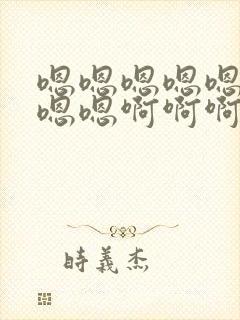 嗯嗯嗯嗯嗯
嗯嗯啊啊啊
時義杰